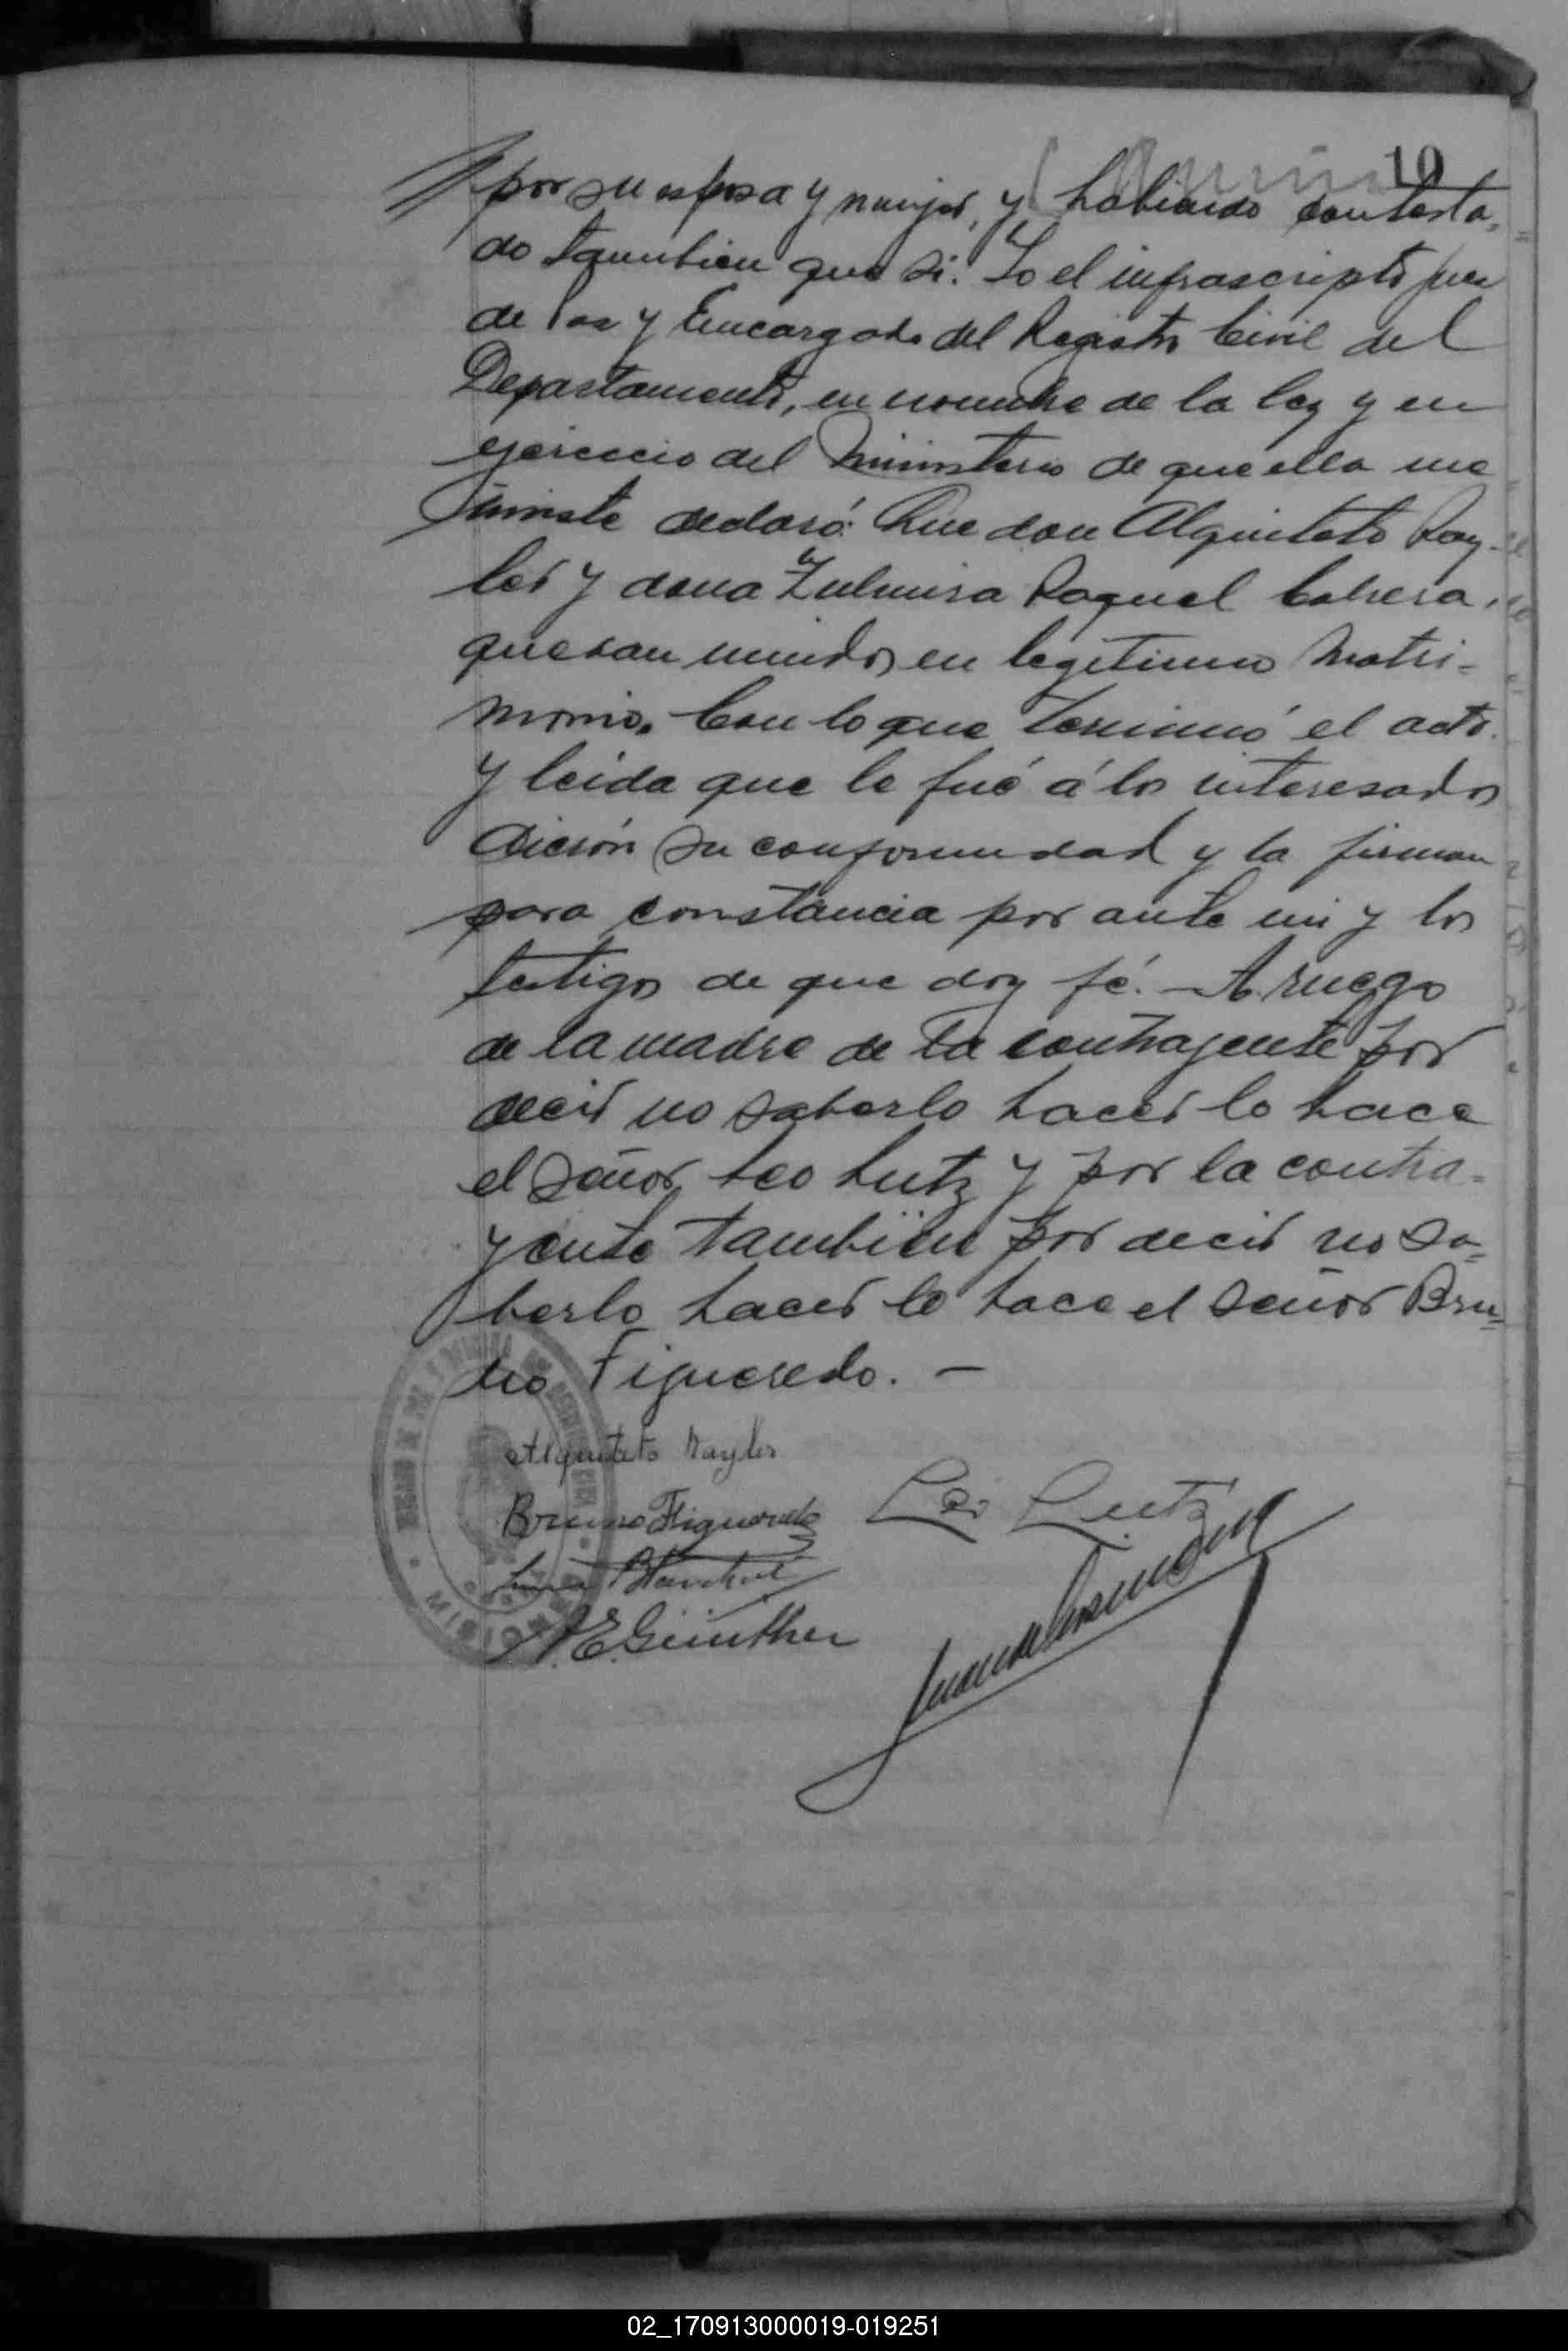 10
por su esposa y mujer, y habiendo contesta-
do tambien que si. Yo el infrascripto juez
de Paz y Encargado del Registro Civil del
Departamento, en nombre de la ley y en
ejercicio del Ministerio de que ella me
inviste declaró: Que don Alquiteto Ray-
ler y dona Zulmira Raquel Cabrera,
quesan unidos en legitimo Matri-
monio. Con lo que terminó el acto.
y leida que le fué á los interesados
dieron su conformidad y la firman
para constancia por ante mi y los
testigos de que doy fé. - A ruego
de la madre de la contrayente por
decir no saberlo hacer lo hace
el señor Leo Lutz y por la contra-
yente tambien por decir no sa-
berlo hacer lo hace el señor Bru-
no Figueredo. -
Alquiteto Rayler
Bruno Figueredo Leo Lutz
E. Günther
02_170913000019-019251